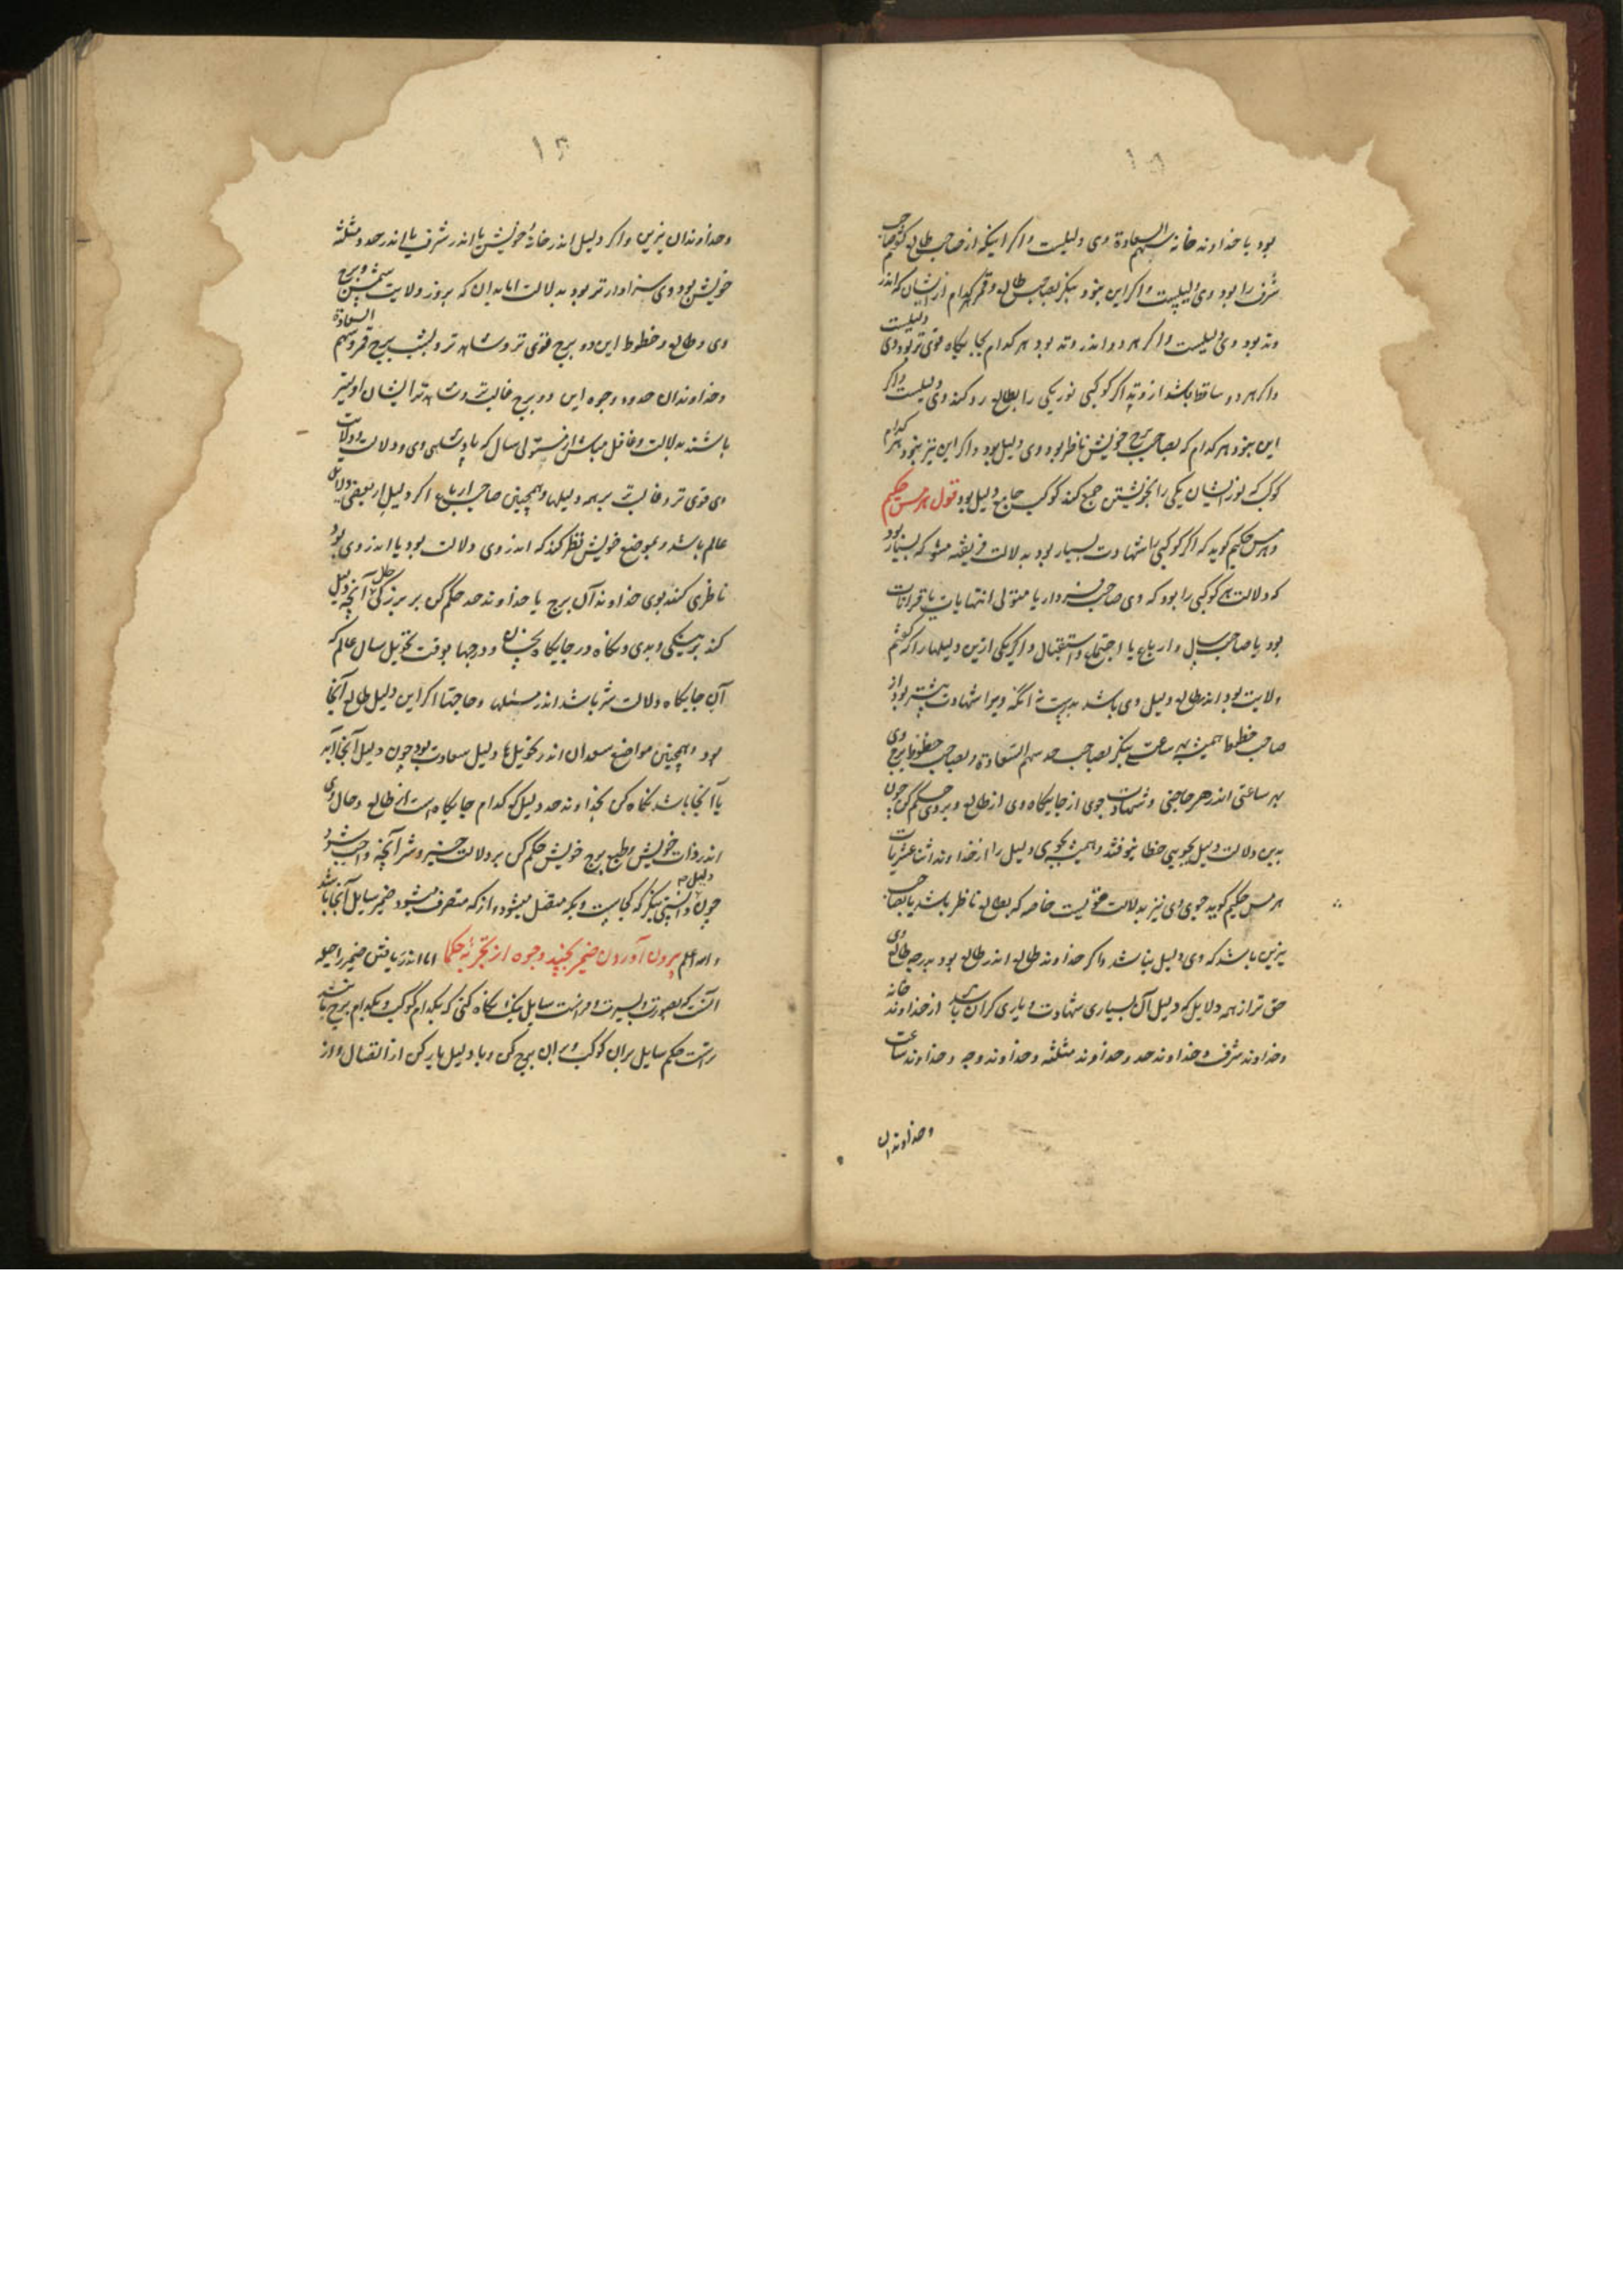 بود یا خداوند خانه سهم السعادة وی دلیلست و اگر اینکه از صاحب طالع کفتم صاحب
شرف را بود وی دلیلست و اگر این نبود بنگر بصاحب طالع و قمر هر کدام ازیشان که اندر
وتد بود وی دلیلست و اگر هر دو اندر وتد بود هر کدام بجایگاه قوی تر بود وی دلیلست
و اگر هر دو ساقط باشد از وتد اگر کوکبی نور یکی را بطالع رد کند وی دلیلست و اگر
این نبود هر کدام که بصاحب برج خویش ناظر بود وی دلیل بود و اگر این نیز نبود هر کدام
کوکب که نور ایشان یکی را بخویشتن جمع کند کوکب جامع دلیل بود قول هرمس حکیم
هرمس حکیم گوید که اگر کوکبی را شهادت بسیار بود بدلالت فریفته مشو که بسیار بود
که دلالت کوکبی را بود که وی صاحب فردار یا متولی انتهایات یا قرانات
بود یا صاحب سال و ارباع یا اجتماع و استقبال و اگر یکی ازین دلیلها را که گفتم
ولایت بود اندر طالع دلیل وی باشد بدرست نه آنکه ویرا شهادت بیشتر بود از
صاحب حظوظ همیشه بهر ساعتی بنگر بصاحب حد سهم السعادة و بصاحب حظوظ برج وی
بهر ساعتی اندر هر حاجتی و شهادت جوی از جایگاه وی از طالع و بر وی حکم کن چون
بدین دلالت دلیل بجویی خطا نیوفتد و همیشه بجوی دلیل را از خداوند اثناعشریات
هرمس حکیم گوید جوی وی نیز بدلالت حقست خاصه که بطالع ناظر باشد یا بصاحب
نیرین باشد که وی دلیل باشد و اگر خداوند طالع اندر طالع بود بدرجه طالع وی
حق تر از همه دلایل که دلیل آن بسیاری شهادت و یاری گران باشد از خداوند خانه
و خداوند شرف و خداوند حد و خداوند مثلثه و خداوند وجه و خداوند ساعت
و خداوندان
و خداوندان نیرین و اگر دلیل اندر خانه خویش یا اندر شرف یا اندر حد و مثلثه
خویش بود وی سزاوارتر بود بدلالت اما بدان که بروز ولایت شمس و برج
وی و طالع و حظوظ این دو برج قوی تر و شاهدتر و بشب برج قمر و سهم السعادة
و خداوندان حدود و وجوه این دو برج غالبتر و شاهدتر ایشان اولیتر
باشند بدلالت و غافل مباش از مستولی سال که پادشاهی وی و دلالت
وی قوی تر و غالبتر بر همه دلیلها و همچنین صاحب ارباع اگر دلیل
عالم باشد و بموضع خویش نظر کند که اندر وی دلالت بود یا اندر وی بود
ناظری کند بوی خداوند آن برج یا خداوند حد حکم کن بر بزرگی آنچه دلیل
کند بر نیکی و بدی و نگاه در جایگاه و درجها بوقت تحویل سال عالم که
آن جایگاه دلالت شر باشد اندر مسئلها و حاجتها اگر این دلیل طالع آنجا
بود و همچنین مواضع سعدان اندر تحویل ها دلیل سعادت بود چون دلیل آنجا آید
یا آنجا باشد نگاه کن بخداوند حد دلیل که کدام جایگاه است از طالع و حال وی
اندر ذات خویش و طبع برج خویش حکم کن بر دلالت خیر و شر آنچه واجب شود
چون دلیل دانستی بنگر که کجاست و بکه متصل میشود و از که منصرف میشود ضمیر سایل آنجا باشد
والله اعلم بیرون آوردن ضمیر بچند وجوه از تجربه حکما اما اندر یافتن ضمیر را حیله
آنست که بصورت و سیرت و فراست سایل نیک نگاه کنی که بکدام کوکب و بکدام برج ماند
راست حکم سایل بر آن کوکب و بر آن برج کن و با دلیل یار کن از اتصال و از